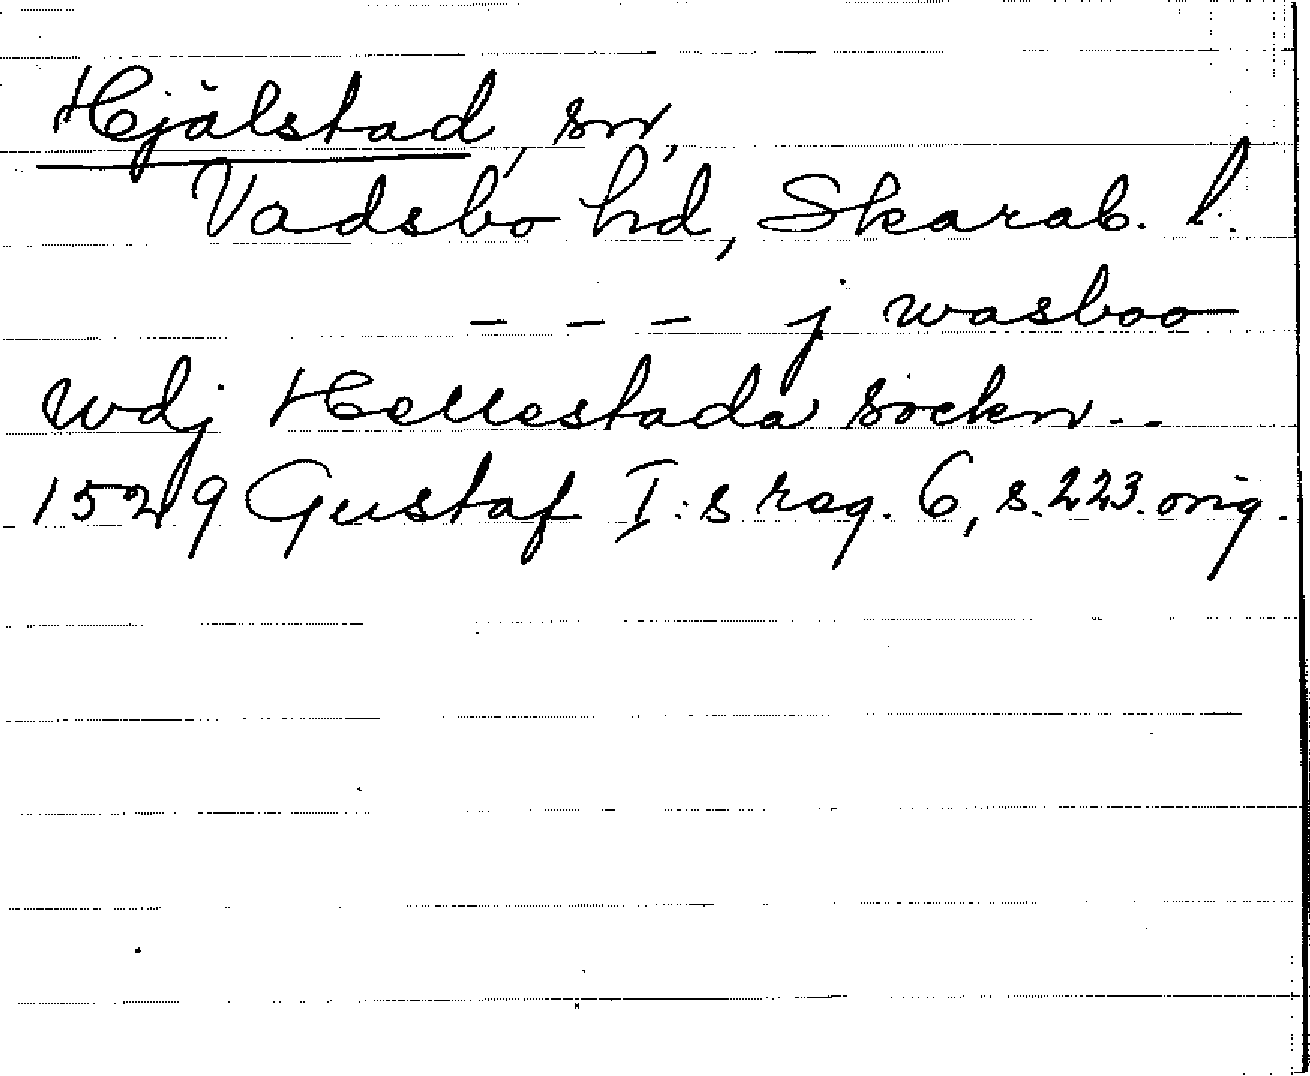 Hjälstad, sn,
Vadsbo hd, Skarab. l.
- - - j wasboo
wdj Hellestada sockn..
1529 Gustaf I:s reg. 6, s. 223. orig.